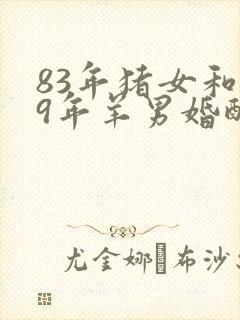 83年猪女和
9年羊男婚配
尤金娜 布沙